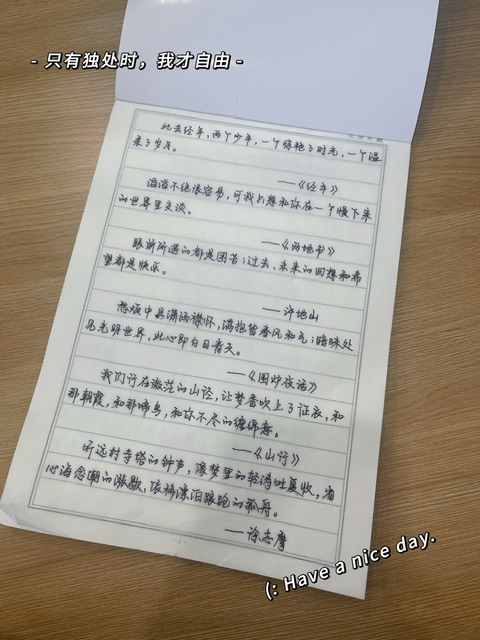 - 只有独处时，我才自由 -
此去经年，两个少年，一个惊艳了时光，一个温
柔了岁月。
——《经年》
滔滔不绝很容易，可我只想和你在一个慢下来
的世界里交谈。
——《两地书》
眼前所遇的都是困苦；过去、未来的回想和希
望都是快乐。
——许地山
愁烦中具潇洒襟怀，满抱皆春风和气；暗昧处
见光明世界，此心即白日青天。
——《围炉夜话》
我们行在微茫的山径，让梦香吹上了征衣，和
那朝霞，和那啼鸟，和你不尽的缠绵意。
——《山行》
听远村寺塔的钟声，像梦里的轻涛吐复收，省
心海念潮的涨歇，依稀漂泊踉跄的孤舟。
——徐志摩
(: Have a nice day.